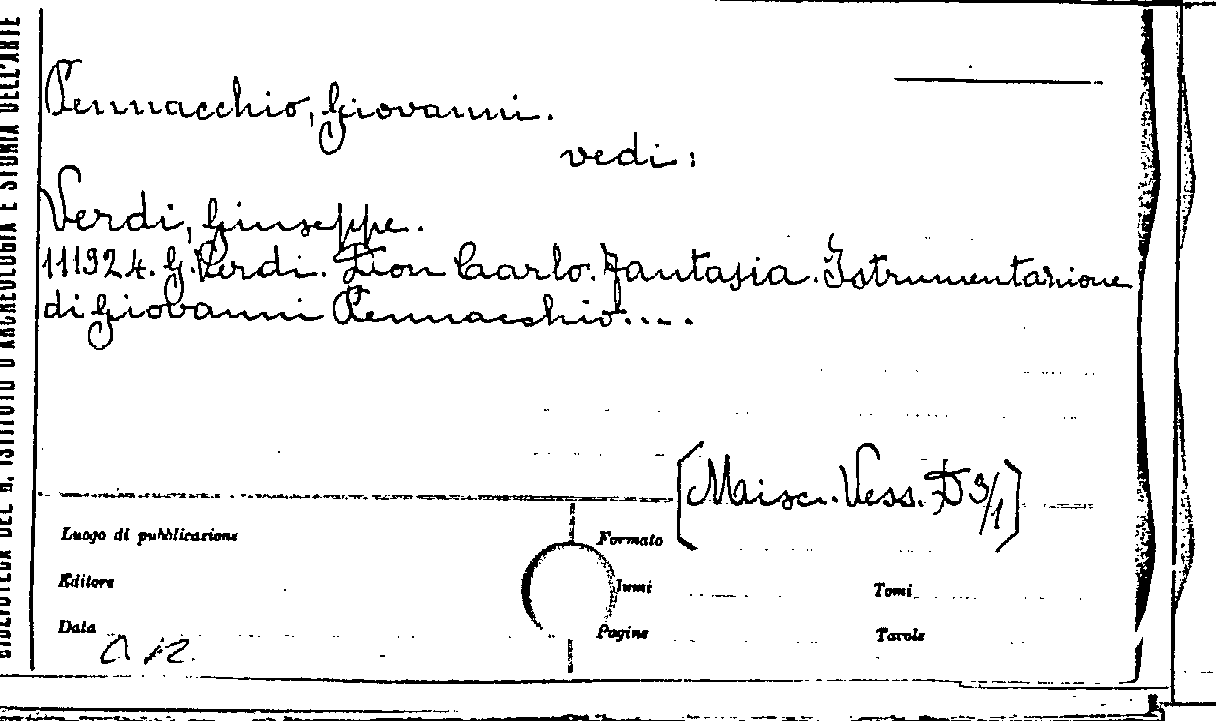 BIBLIOTECA DEL R. ISTITUTO D'ARCHEOLOGIA E STORIA DELL'ARTE
Pennacchio, Giovanni.
vedi:
Verdi, Giuseppe.
111924. G. Verdi. Don Carlo. Fantasia. Istrumentazione
di Giovanni Pennacchio....
[Misc. Vess. D3/1]
Luogo di pubblicazione
Formato
Editore
Tomi
Data
Pagine
Tavole